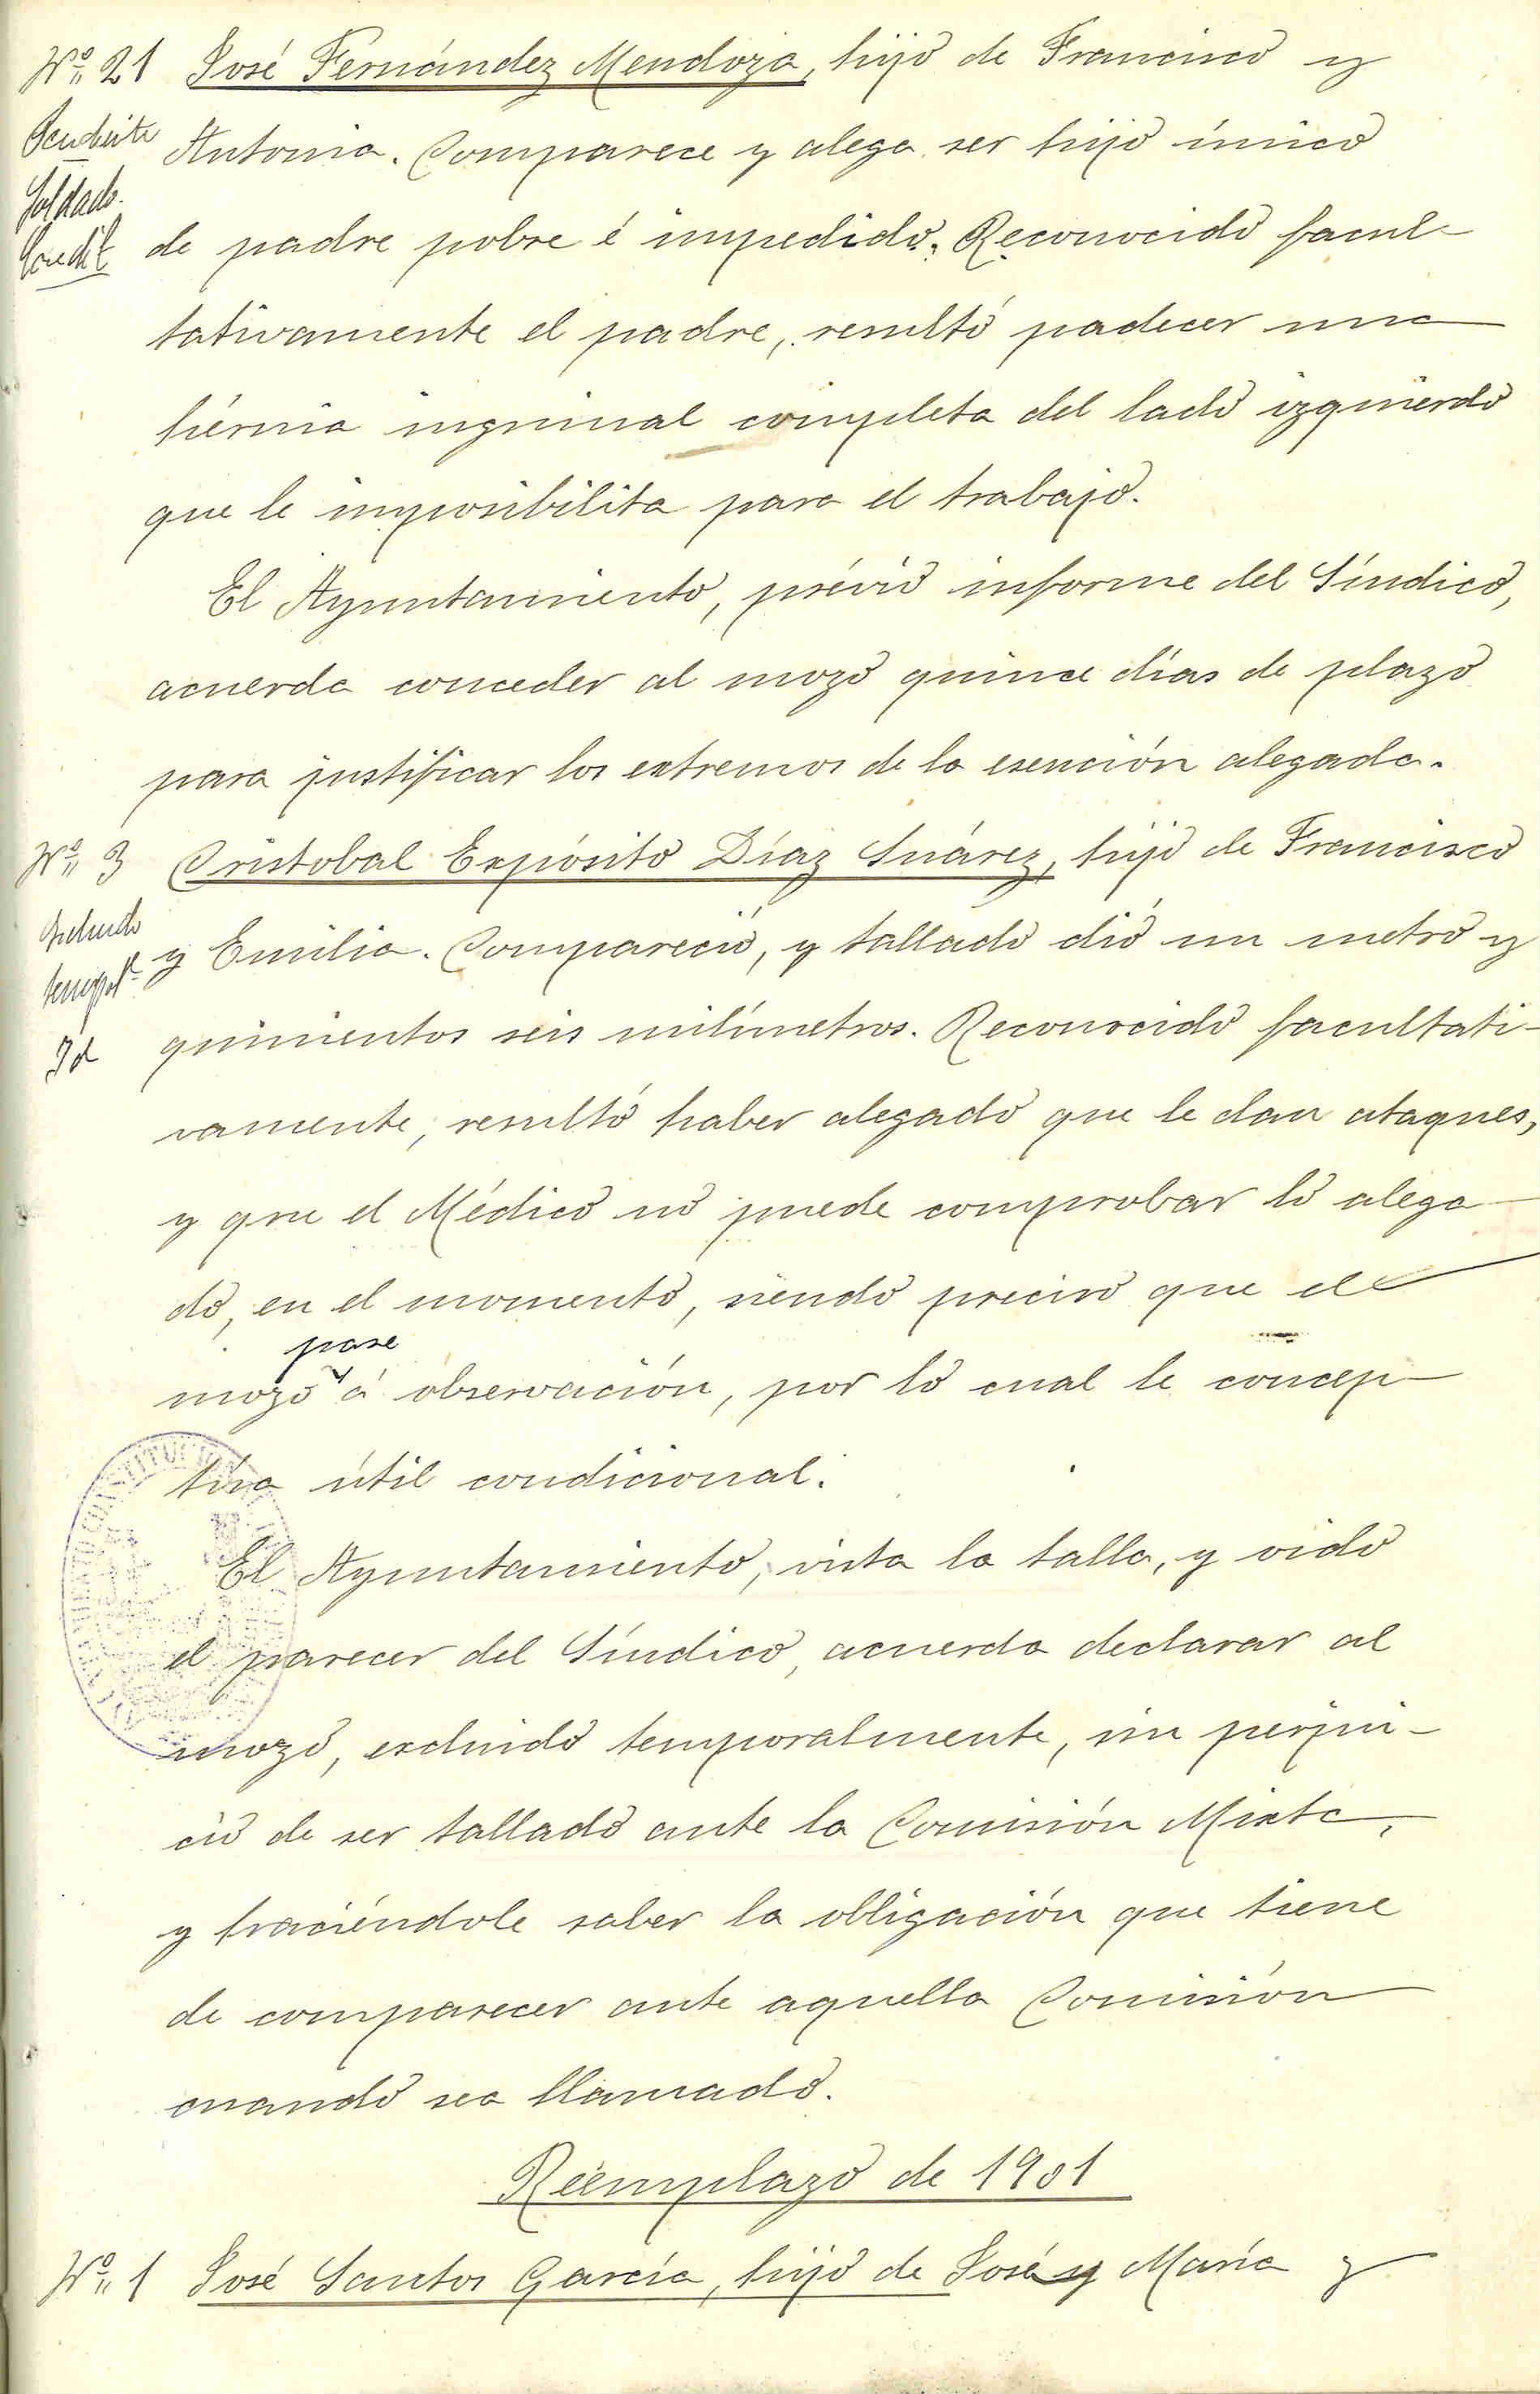 Nº 21 José Fernández Mendoza, hijo de Francisco y
Pendiente Antonia. Comparece y alega ser hijo único
Soldado.
Condl. de padre pobre é impedido. Reconocido facul-
tativamente el padre, resultó padecer una
hérnia inguinal completa del lado izquierdo
que le imposibilita para el trabajo.
El Ayuntamiento, prévio informe del Síndico,
acuerda conceder al mozo quince días de plazo
para justificar los extremos de la esención alegada.
Nº 3 Cristobal Expósito Díaz Suárez, hijo de Francisco
Excluido
y Emilia. Compareció, y tallado dió un metro y
tempol.
Id quinientos seis milímetros. Reconocido facultati-
vamente, resultó haber alegado que le dan ataques,
y que el Médico no puede comprobar lo alega
do, en el momento, siendo preciso que el
pase
mozo á observación, por lo cual le concep-
túa útil condicional.
El Ayuntamiento, vista la talla, y oido
el parecer del Síndico, acuerda declarar al
mozo, excluido temporalmente, sin perjui-
cio de ser tallado ante la Comisión Mixta,
y haciéndole saber la obligación que tiene
de comparecer ante aquella Comisión
cuando sea llamado.
Reemplazo de 1901
Nº 1 José Santos García, hijo de José y María y